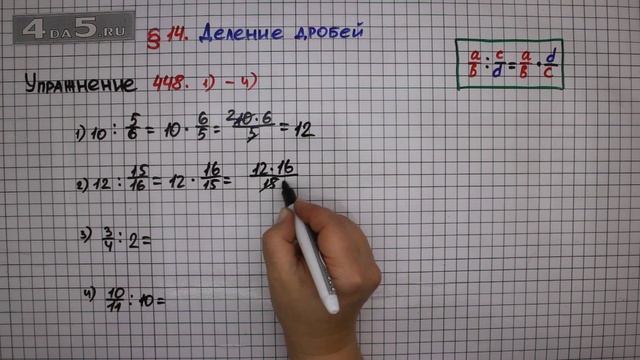 4DA5.RU
§ 14. Деление дробей
a/b : c/d = a/b · d/c
Упражнение 448. 1) – 4)
1) 10 : 5/6 = 10 · 6/5 = 2 10 · 6/5 = 12
2) 12 : 15/16 = 12 · 16/15 = 12 · 16/15
3) 3/4 : 2 =
4) 10/11 : 10 =